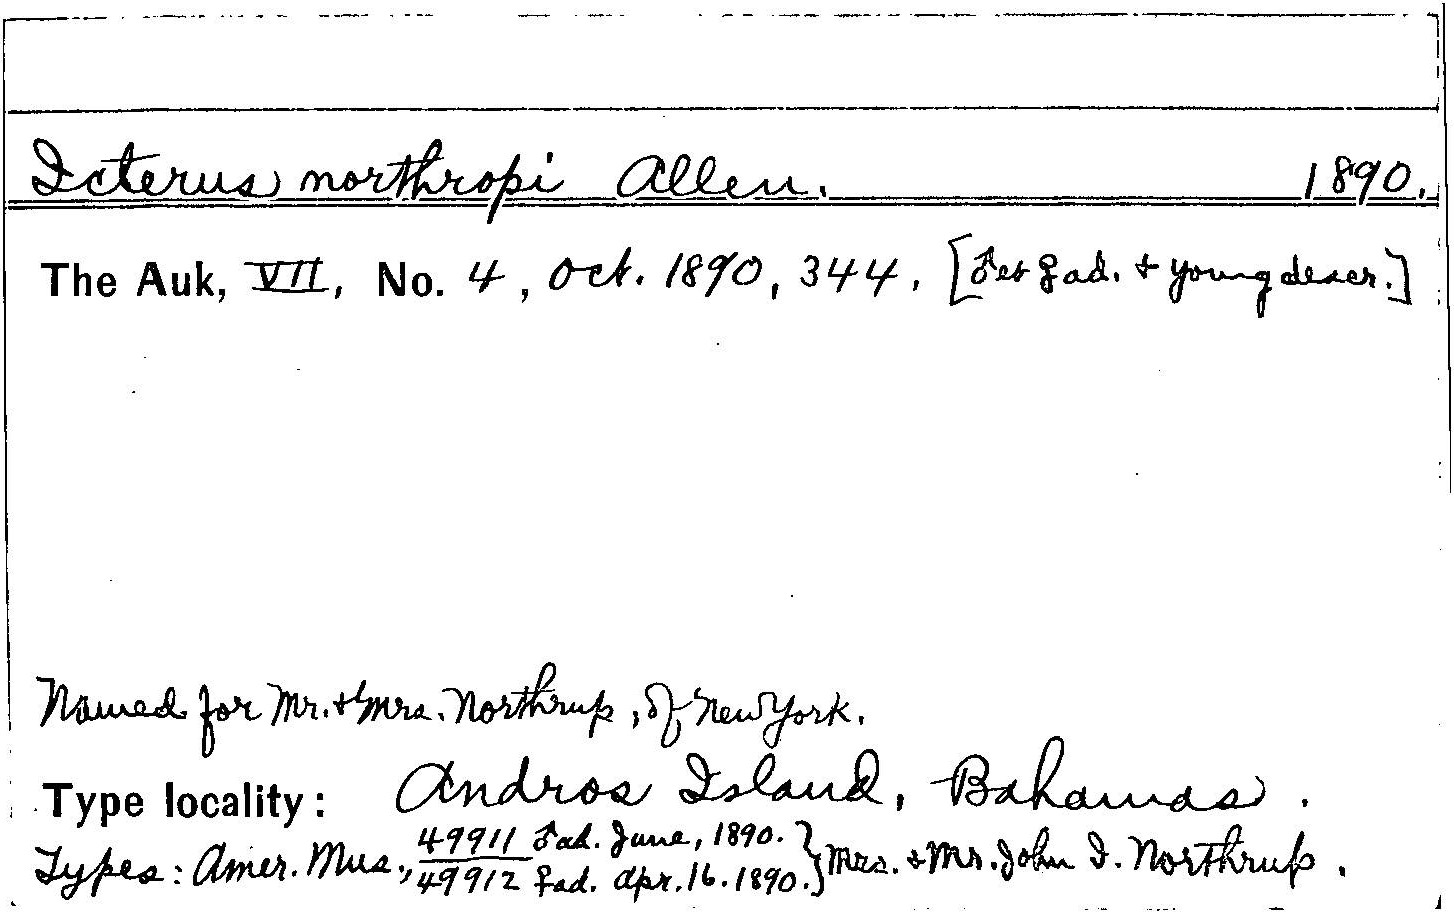 Icterus northropi Allen. 1890.
The Auk, VII, No. 4, Oct. 1890, 344. [♂ et ♀ ad. & young descr.]
Named for Mr. & Mrs. Northrup, of New York.
Type locality: Andros Island, Bahamas.
Types: Amer. Mus., 49911 ♂ ad. June, 1890. } Mrs. & Mr. John I. Northrup.
49912 ♀ ad. Apr. 16. 1890.